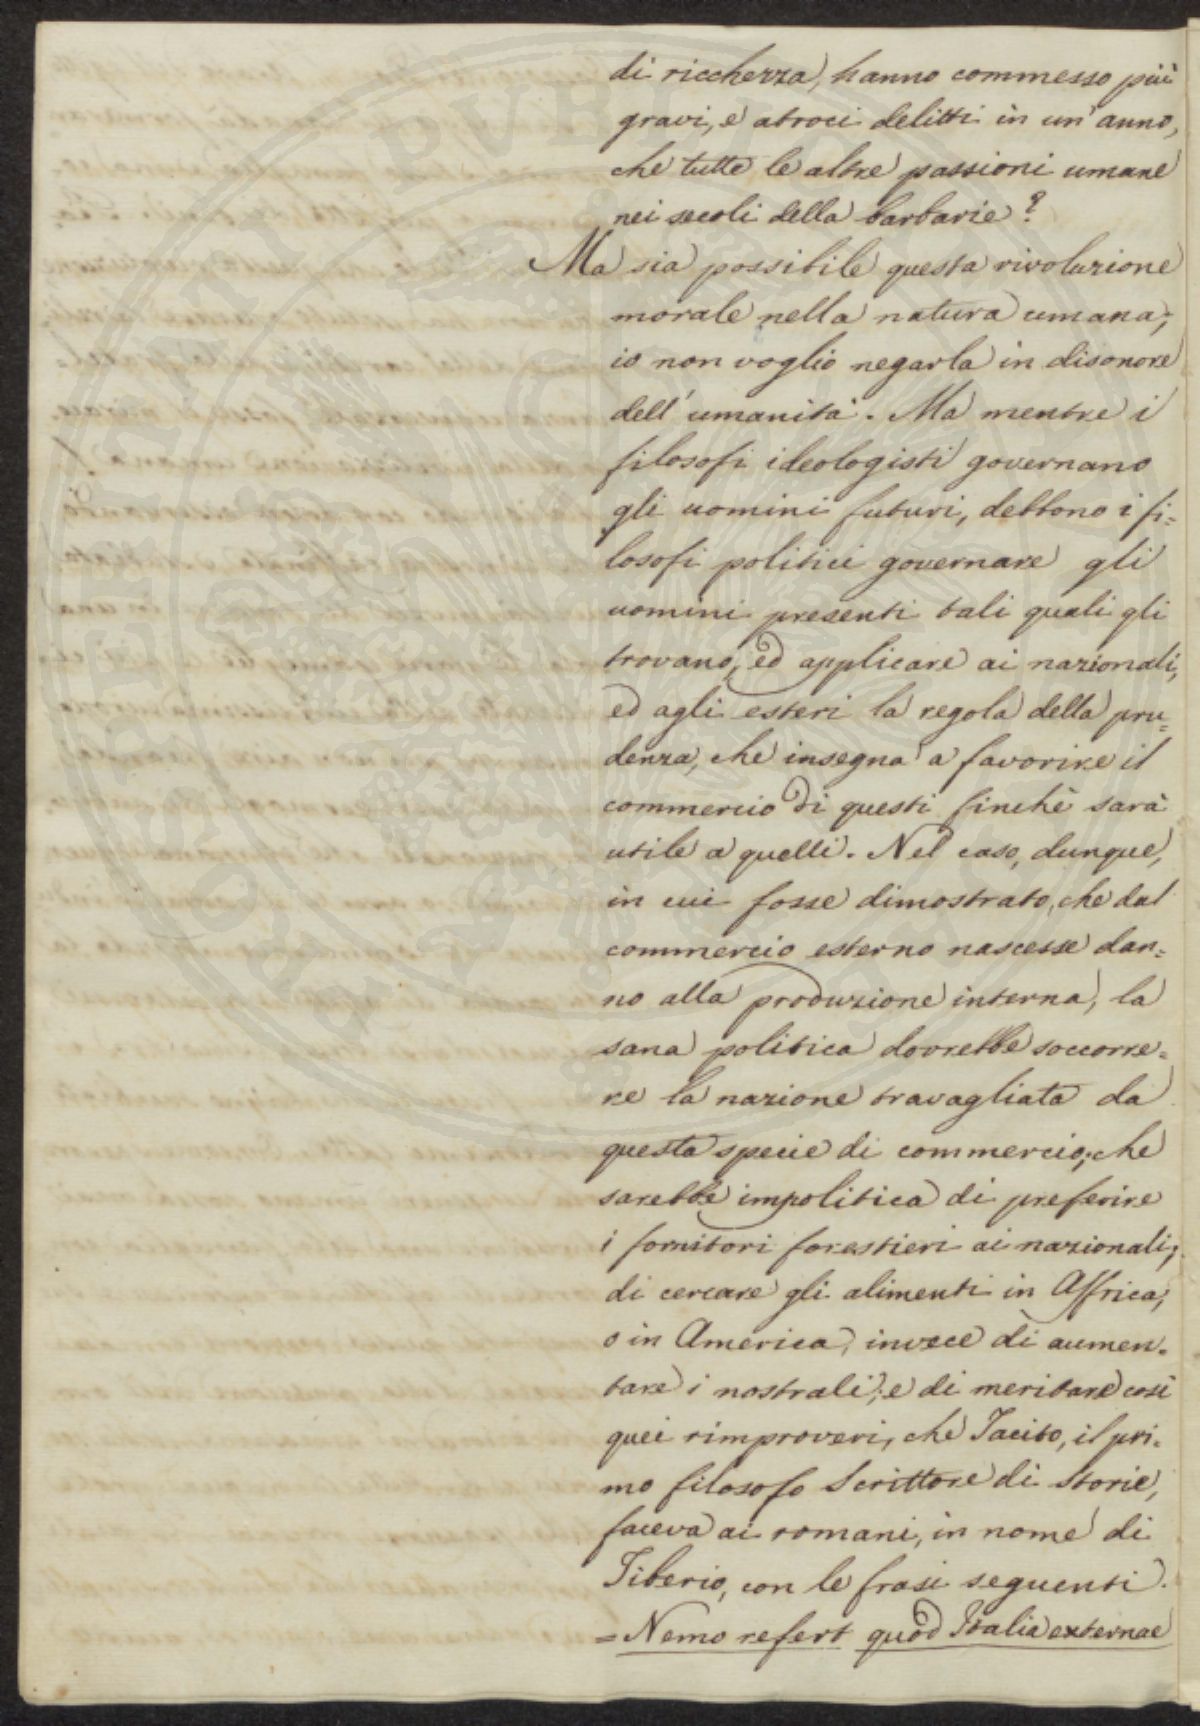 di ricchezza, hanno commesso più
gravi, e atroci delitti in un' anno,
che tutte le altre passioni umane
nei secoli della barbarie?
Ma sia possibile questa rivoluzione
morale nella natura umana;
io non voglio negarla in disonore
dell' umanità. Ma mentre i
filosofi ideologisti governano
gli uomini futuri, debbono i fi=
losofi politici governare gli
uomini presenti tali quali gli
trovano, ed applicare ai nazionali,
ed agli esteri la regola della pru=
denza, che insegna a favorire il
commercio di questi finchè sarà
utile a quelli. Nel caso, dunque,
in cui fosse dimostrato, che dal
commercio esterno nascesse dan=
no alla produzione interna, la
sana politica dovrebbe soccorre=
re la nazione travagliata da
questa specie di commercio; che
sarebbe impolitica di preferire
i fornitori forestieri ai nazionali;
di cercare gli alimenti in Affrica,
o in America, invece di aumen=
tare i nostrali; e di meritare così
quei rimproveri, che Tacito, il pri=
mo filosofo Scrittore di storie,
faceva ai romani, in nome di
Tiberio, con le frasi seguenti.
=Nemo refert quod Italia externae